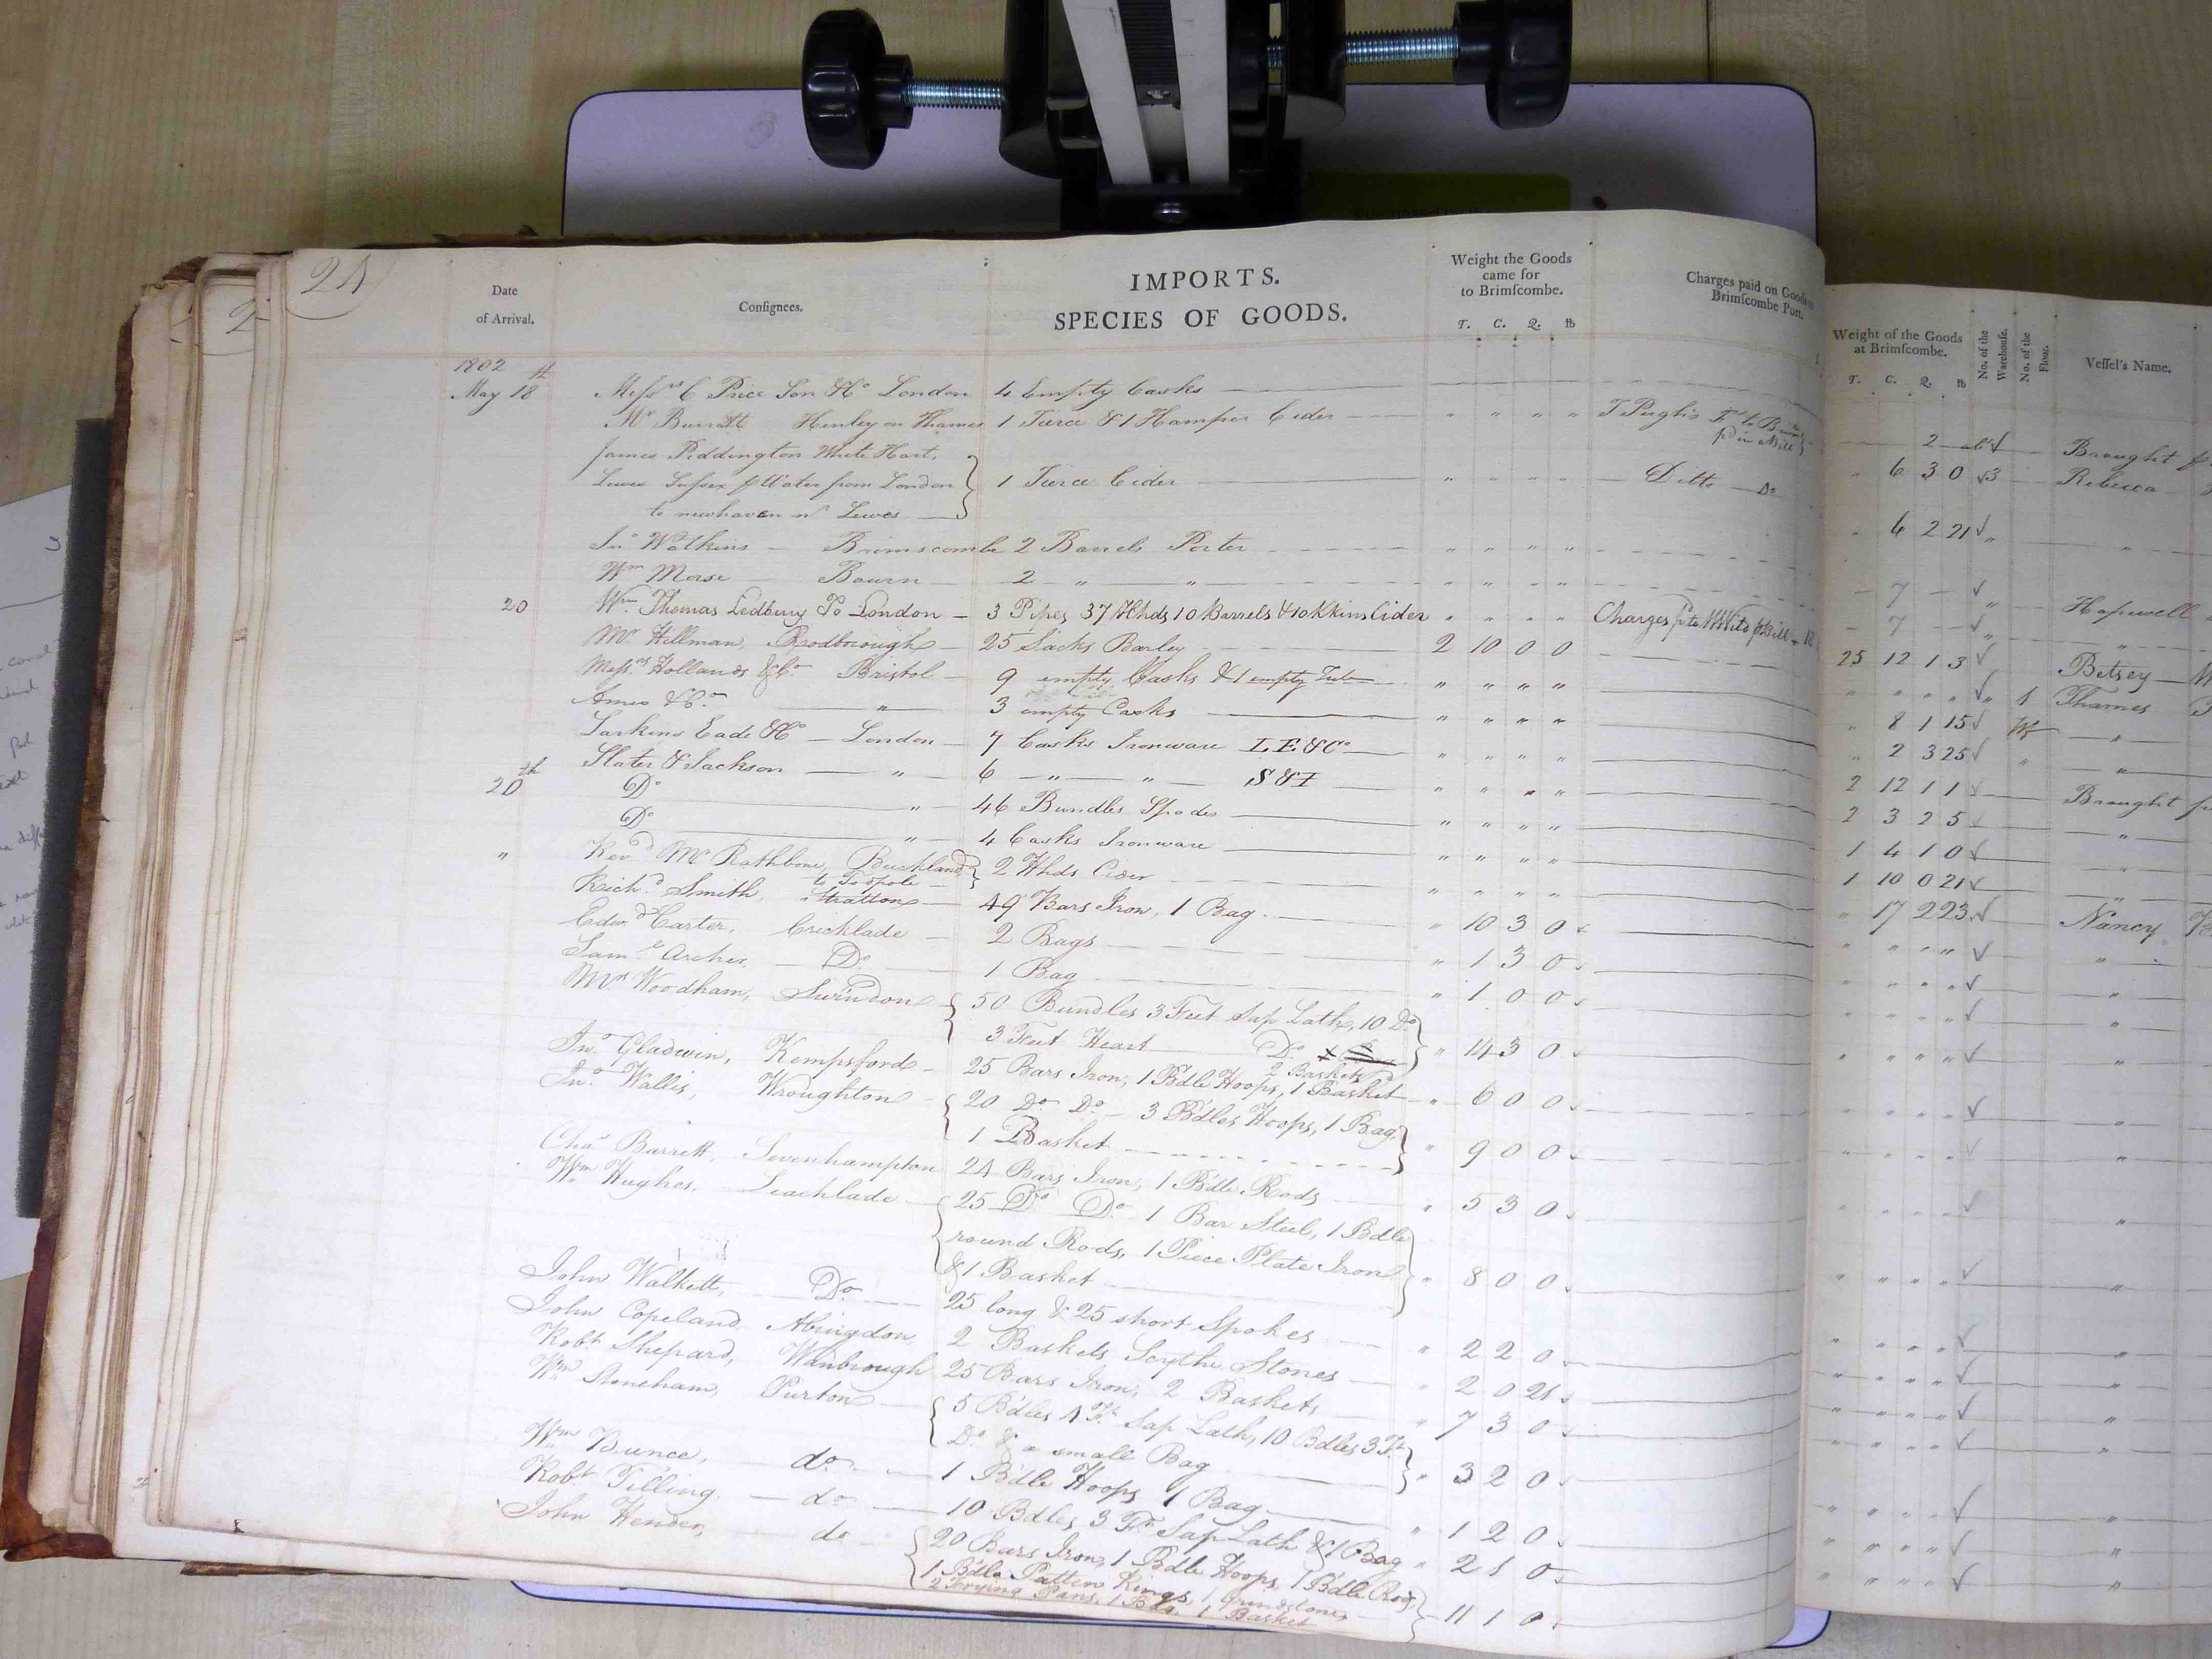 24
2
Date
of Arrival.
Consignees.
IMPORTS.
SPECIES OF GOODS.
Weight the Goods
came for
to Brimscombe.
T. C. Q. lb
Charges paid on Goods to
Brimscombe Port.
1802
May 18 Messrs C Price Son & Co London 4 Empty Casks
Mr Burratt Henley on Thames 1 Tierce & 1 Hamper Cider " " " " T Pugh's
James Piddington White Hart,
Lewes Sussex p Water from London } 1 Tierce Cider " " " " Ditto Do
to newhaven nr Lewes
Jno Watkins - Brimscombe 2 Barrels Porter " " " "
Wm Morse Bourn 2 " " " " " "
20 Wm Thomas Ledbury To London - 3 Pipes 37 Hhds 10 Barrels & 10 Kkins Cider " " " " Charges
Mr Hillman, Rodborough - 25 Sacks Barley 2 10 0 0
Messrs Hollands & Co Bristol - 9 empty Casks & 1 empty Tub " " " "
Ames & Co " 3 empty Casks " " " "
Larkins Eade & Co - London - 7 Casks Ironware L E & Co " " " "
Slater & Jackson " 6 " " S & I " " " "
20th Do " 46 Bundles Spades " " " "
Do " 4 Casks Ironware " " " "
" Revd Mr Rathbone, Buckland, } 2 Hhds Cider " " " "
to
Richd Smith, Stratton 49 Bars Iron, 1 Bag " 10 3 0
Edwd Carter, Cricklade - 2 Bags " 1 3 0
Saml Archer, Do 1 Bag " 1 0 0
Mrs Woodham, Swindon { 50 Bundles 3 Feet Sap Lath, 10 Do
3 Feet Heart Do } " 14 3 0
2 Baskets
Jno Gladwin, Kempsford - 25 Bars Iron, 1 Bdle Hoops, 1 Basket " 6 0 0
Jno Wallis, Wroughton { 20 Do Do - 3 Bdles Hoops, 1 Bag
1 Basket } " 9 0 0
Chas Barrett, Sevenhampton 24 Bars Iron, 1 Bdle Rods " 5 3 0
Wm Hughes, Leachlade { 25 Do Do 1 Bar Steel, 1 Bdle
round Rods, 1 Piece Plate Iron
& 1 Basket } " 8 0 0
John Walkett, Do 25 long & 25 short Spokes " 2 2 0
John Copeland Abingdon, 2 Baskets Scythe Stones " 2 0 21
Robt Shepard, Wanbrough 25 Bars Iron, 2 Baskets " 7 3 0
Wm Stoneham, Purton { 5 Bdles 4 Ft Sap Lath, 10 Bdles 3 Ft
Do & a small Bag } " 3 2 0
Wm Bunce, do 1 Bdle Hoops 1 Bag " 1 2 0
Robt Tilling, do 10 Bdles 3 Ft Sap Lath & 1 Bag " 2 1 0
John Hender, do { 20 Bars Iron, 1 Bdle Hoops, 1 Bdle Rods
1 Bdle Patten Rings, 1 Grindstone,
2 Frying Pans, 1 Bag, 1 Basket } 11 1 0
Weight of the Goods
at Brimscombe.
T. C. Q. lb
No. of the
Warehouse.
No. of the
Floor.
Vessel's Name.
2 Brought
6 3 0 3 Rebecca
6 2 21 " "
7 " Hopewell
7 " "
25 12 1 3 Betsey
" " " " " 1 Thames
" 8 1 15 "
" 2 3 25 " "
2 12 1 1 Brought
2 3 2 5 "
1 4 1 0 "
1 10 0 21 "
" 17 2 23 Nancy